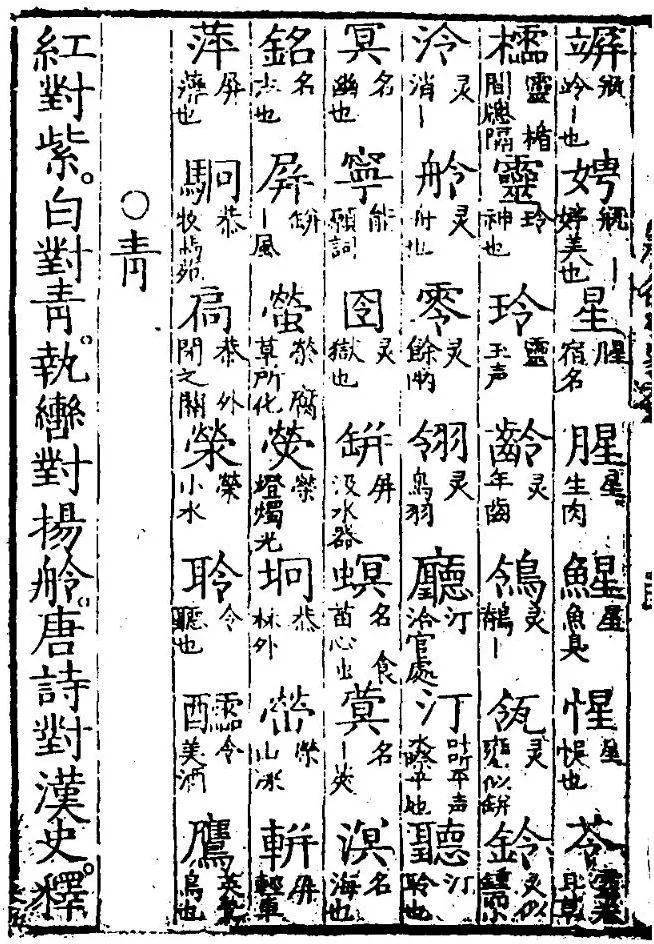 竮瓶岭一也娉瓶婷美也星腥宿名腥星生肉鯹星魚臭惺星悞也苓靈卷耳草
櫺靈楯間牕隔靈玲神也玲靈玉声齡灵年齒鴒灵鶺一瓴灵甕似缾鈴灵似鐘小
泠灵消一舲灵舟也零灵餘雨翎灵鳥羽廳汀治官處汀听平声水際平地聽汀聆也
冥名幽也寧能願詞囹灵獄也缾屏汲水器螟名食苗心虫蓂名一莢溟名海也
銘名志也屏缾一風螢腐草所化熒榮燈燭光坰恭林外榮山軿屏輕車
萍屏薸也駉恭牧馬苑扃恭外閉之關滎榮小水聆令聽也醽令美酒鷹英鳥也
○青
紅對紫。白對青。執轡對揚舲。唐詩對漢史。釋